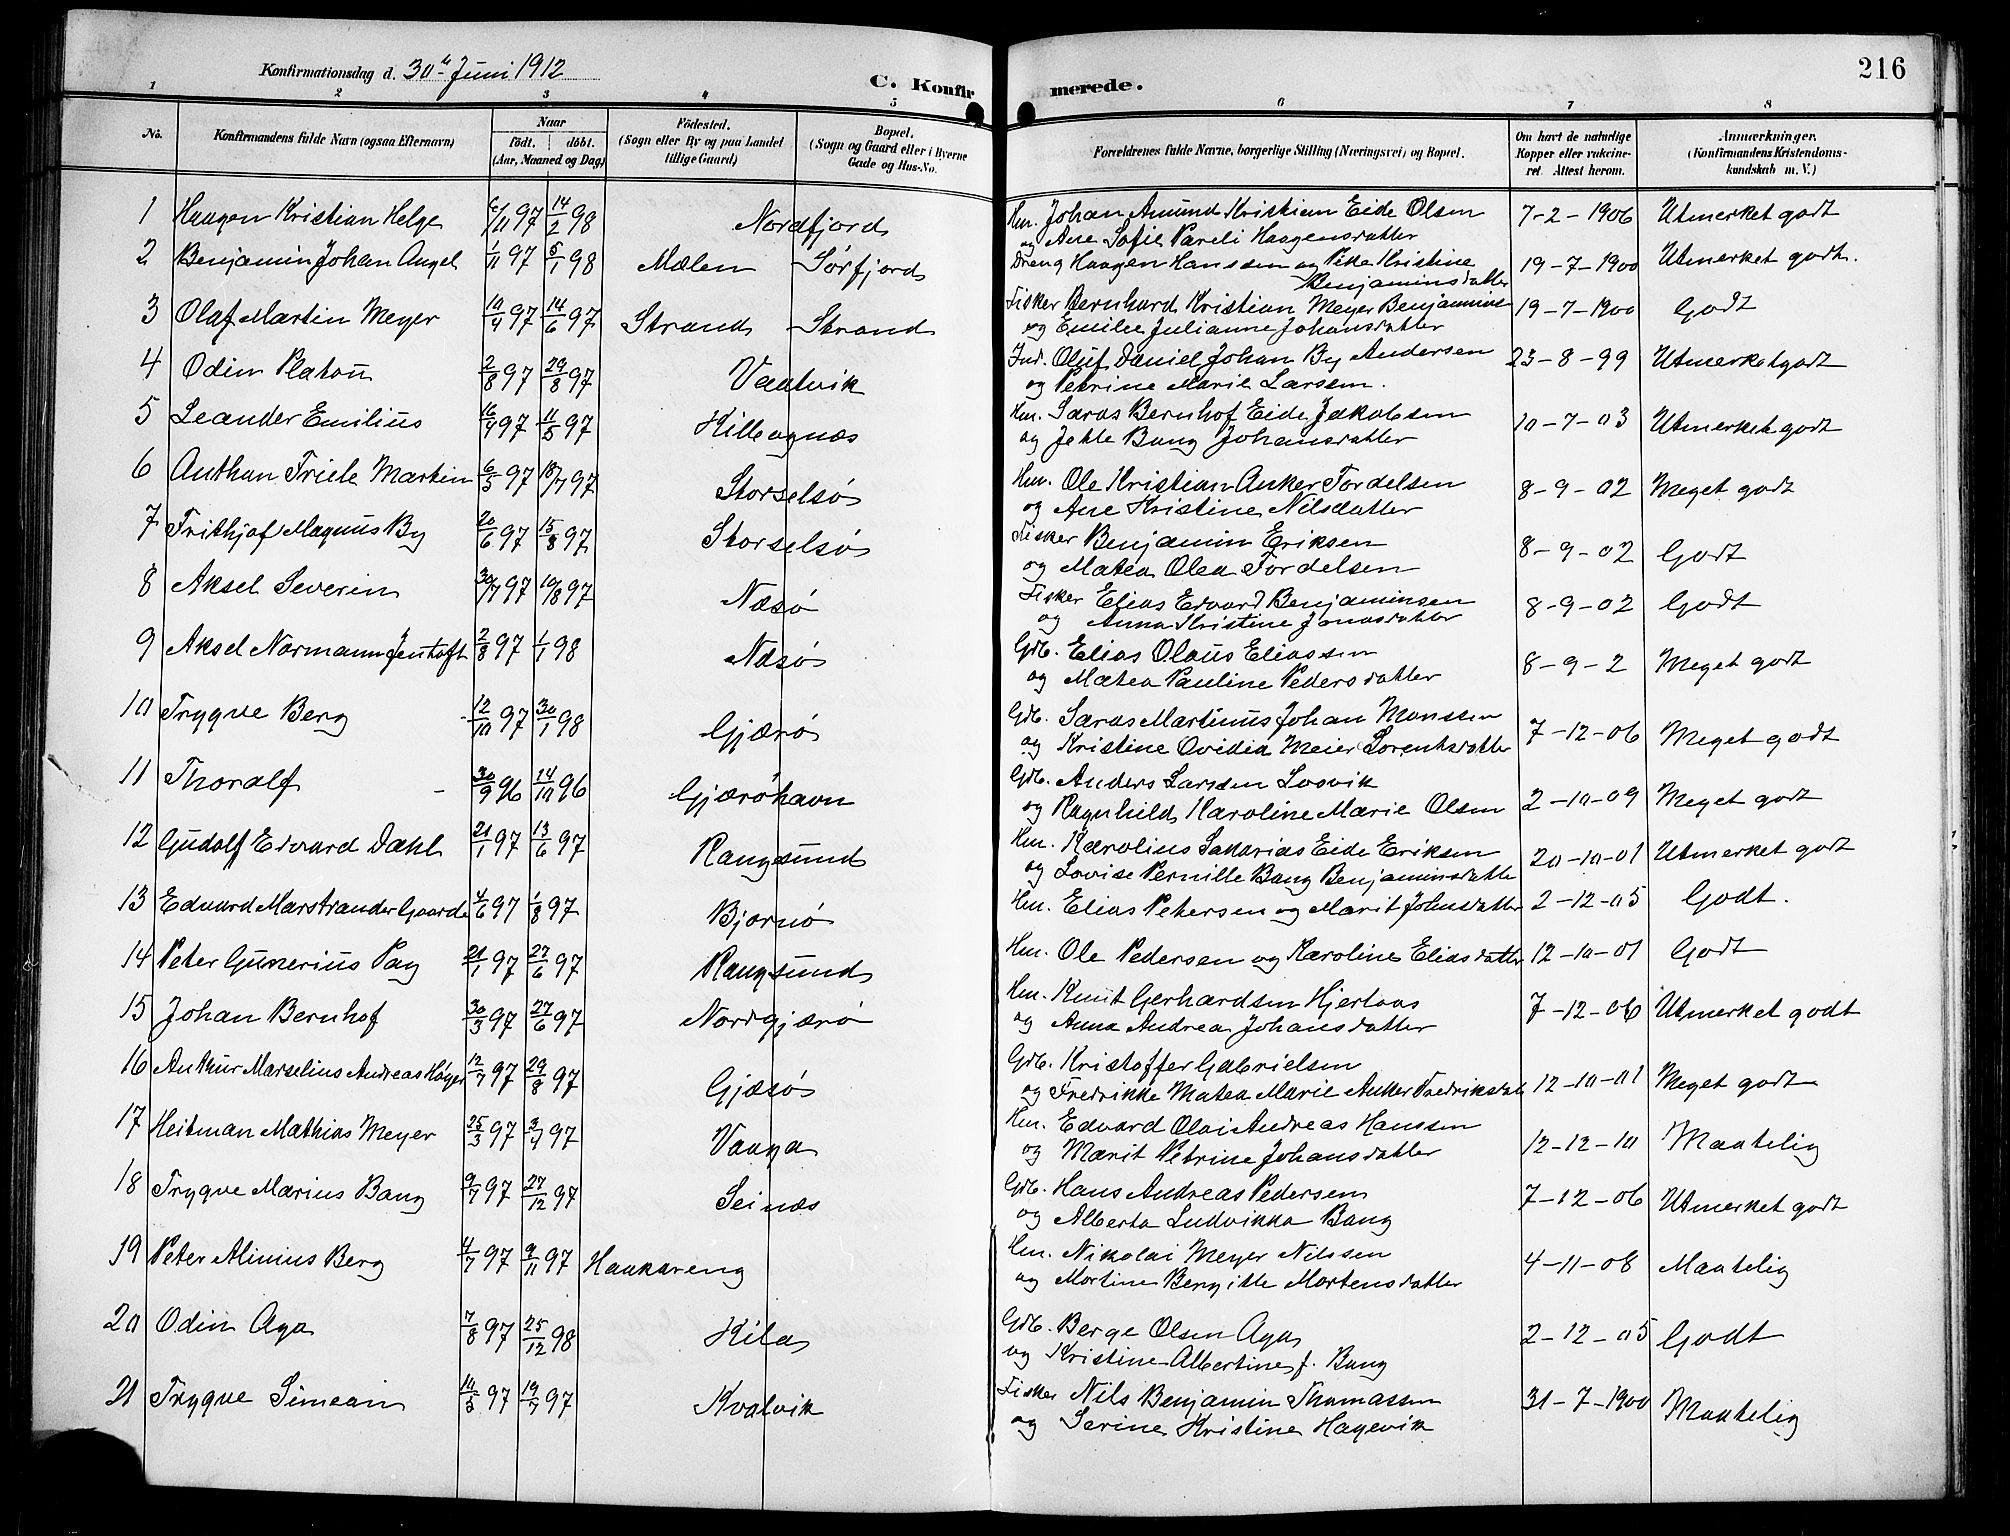 Konfirmationsdag d. 30te Juni 1912
C. Konfirmerede.
216
1 2 3 4 5 6 7 8
No. Konfirmandens fulde Navn (ogsaa Efternavn) Naar født, døbt. (Aar, Maaned og Dag) Fødested. (Sogn eller By og paa Landet tillige Gaard) Bopæl. (Sogn og Gaard eller i Byerne Gade og Hus-No. Forældrenes fulde Navne, borgerlige Stilling (Næringsvei) og Bopæl. Om havt de naturlige Kopper eller vakcineret. Attest herom. Anmærkninger. (Konfirmandens Kristendomskundskab m. V.)
1 Haagen Kristian Helge 6/11 97 14/2 98 Nordfjord Hm. Johan Amund Kristian Eide Olsen 7-2-1906 Utmerket godt
og Ane Sofie Pareli Haagensdatter
2 Benjamin Johan Angel 1/11 97 5/1 98 Mælen Sørfjord Dreng Haagen Hanssen og Kristine 19-7-1900 Utmerket godt.
Benjaminsdatter
3 Olaf Martin Meyer 10/4 97 14/6 97 Strand Strand Fisker Bernhard Kristian Meyer 19-7-1900 Godt
og Emilie Julianne Johansdatter
4 Odin Platou 2/8 97 29/8 97 Vaatvik Ind. Oluf Daniel Johan By Andersen 23-8-99 Utmerket godt
og Petrine Marie Larsen.
5 Leander Emilius 16/4 97 11/5 97 Killeognæs Hm. Saras Bernhof Eide Jakobsen 10-7-03 Utmerket godt
og Jekte Bang Johansdatter
6 Anthon Friele Martin 6/5 97 18/7 97 Storselsø Hm. Ole Kristian Anker Tordelsen 8-9-02 Meget godt
og Ane Kristine Nilsdatter
7 Frithjof Magnus By 20/6 97 15/8 97 Storselsø Fisker Benjamin Eriksen 8-9-02 Godt
og Matea Olea Tordelsen
8 Aksel Severin 30/7 97 10/8 97 Næsø Fisker Elias Edvard Benjaminsen 8-9-02 Godt
og Anna Kristine Jonasdatter
9 Aksel Normann Jentoft 2/8 97 1/1 98 Næsø Gdb. Elias Olaus Eliassen 8-9-2 Meget godt
og Matea Pauline Pedersdatter
10 Trygve Berg 12/10 97 30/1 98 Gjærø Gdb. Saras Martinus Johan Monssen 7-12-06 Meget godt
og Kristine Ovidia Meier Lorentsdatter
11 Thoralf 30/9 96 14/10 96 Gjærøhavn Gdb. Anders Larsen Losvik 2-10-09 Meget godt
og Ragnhild Karoline Marie Olsen
12 Gudolf Edvard Dahl 21/1 97 13/6 97 Rangsund Hm. Karolius Sakarias Eide Eriksen 20-10-01 Utmerket godt
og Lovise Pernille Bang Benjaminsdatter
13 Edvard Marstrander Gaarde 4/6 97 1/8 97 Bjørnø Hm. Elias Petersen og Marit Johnsdatter 2-12-05 Godt.
14 Peter Gunerius Pay 21/1 97 27/6 97 Rangsund Hm. Ole Pedersen og Karoline Eliasdatter 12-10-01 Godt
15 Johan Bernhof 30/3 97 27/6 97 Nordgjærø Hm. Knut Gerhardsen Hjertaas 7-12-06 Utmerket godt
og Anna Andrea Johansdatter
16 Arthur Marselius Andreas Høyer 12/7 97 29/8 97 Gjæsø Gdb. Kristoffer Gabrielsen 12-10-01 Meget godt
og Fredrikke Matea Marie Anker Fredriksdat
17 Heitman Mathias Meyer 25/3 97 3/4 97 Vaaga Hm. Edvard Olai Andreas Hanssen 12-12-10 Maatelig
og Marit Petrine Johansdatter
18 Trygve Marius Bang 9/7 97 27/12 97 Seinæs Gdb. Hans Andreas Pedersen 7-12-06 Utmerket godt
og Alberta Ludvikka Bang
19 Peter Alinius Berg 4/7 97 9/11 97 Haakareng Hm. Nikolai Meyer Nilssen 4-11-08 Maatelig
og Martine Bergitte Mortensdatter
20 Odin Aga 7/8 97 25/12 98 Kila Gdb. Berge Olsen Aga 2-12-05 Godt
og Kristine Albertine f. Bang
21 Trygve Simeon 10/5 97 19/7 97 Kvalvik Fisker Nils Benjamin Thomassen 31-7-1900 Maatelig
og Serine Kristine Hagevik